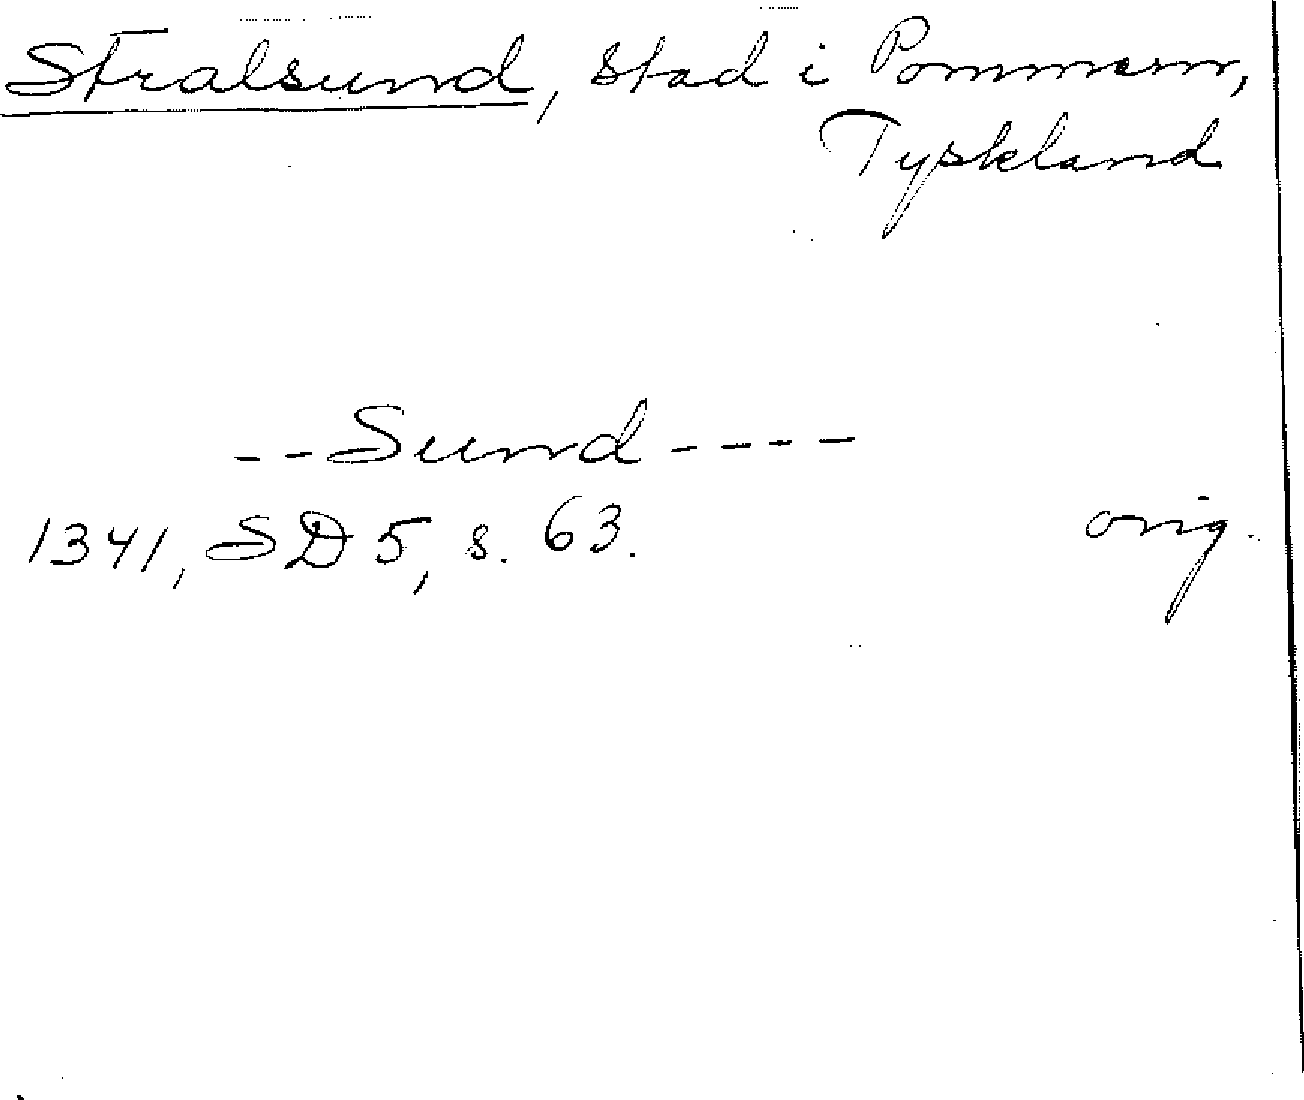 Stralsund, stad i Pommern,
Tyskland
--Sund----
1341, SD 5, s. 63. orig.